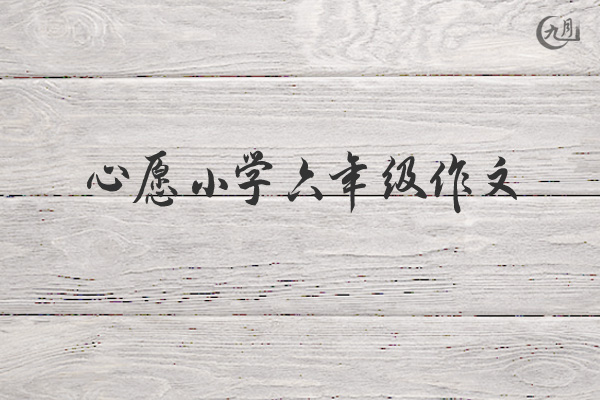 九月
心愿小学六年级作文